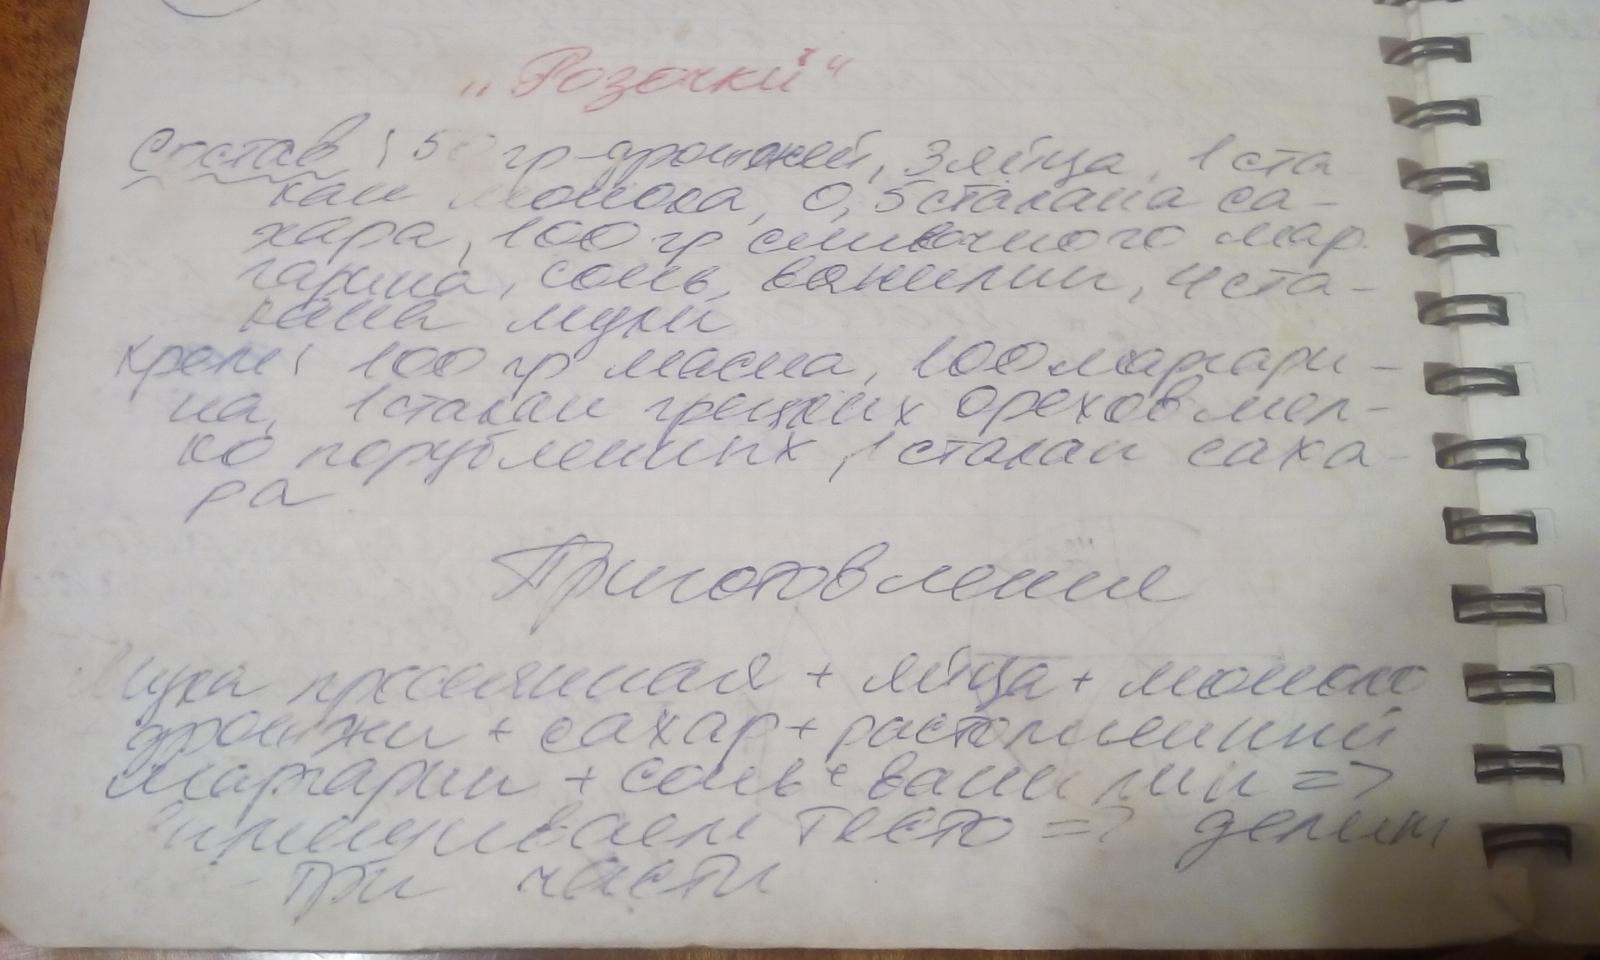 „Розочки"
Состав: 50 гр дрожжей, 3 яйца, 1 ста
кан молока, 0,5 стакана са-
хара, 100 гр сливочного мар
гарина, соль, ванилин, 4 ста-
кана муки
крем: 100 гр масла, 100 маргари-
на, 1 стакан грецких орехов мел-
ко порубленных, 1 стакан саха-
ра
Приготовление
Мука просеянная + яйца + молоко
дрожжи + сахар + растопленный
маргарин + соль + ванилин =>
делим
три части